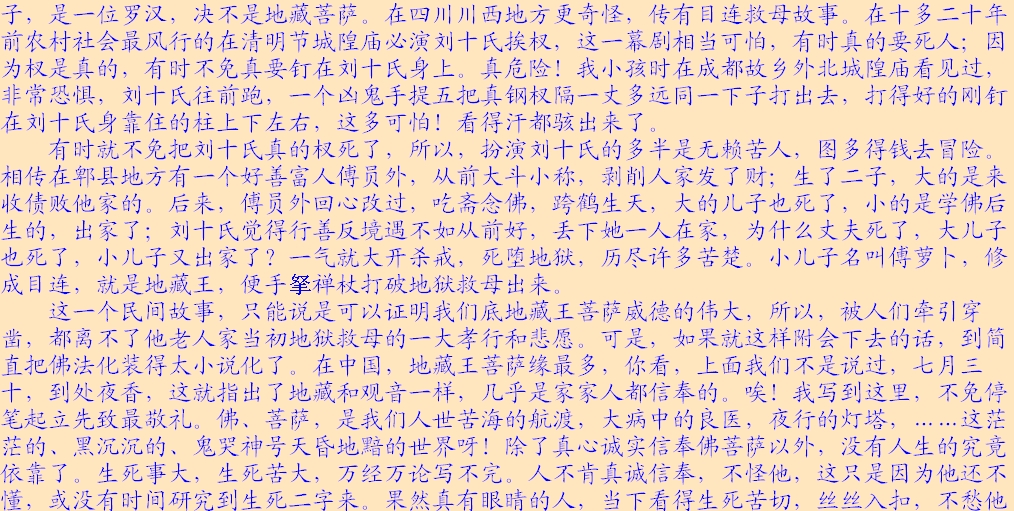 子，是一位罗汉，决不是地藏菩萨。在四川川西地方更奇怪，传有目连救母故事。在十多二十年
前农村社会最风行的在清明节城隍庙必演刘十氏挨杈，这一幕剧相当可怕，有时真的要死人；因
为杈是真的，有时不免真要钉在刘十氏身上。真危险！我小孩时在成都故乡外北城隍庙看见过，
非常恐惧，刘十氏往前跑，一个凶鬼手提五把真钢杈隔一丈多远同一下子打出去，打得好的刚钉
在刘十氏身靠住的柱上下左右，这多可怕！看得汗都骇出来了。
有时就不免把刘十氏真的杈死了，所以，扮演刘十氏的多半是无赖苦人，图多得钱去冒险。
相传在郫县地方有一个好善富人傅员外，从前大斗小称，剥削人家发了财；生了二子，大的是来
收债败他家的。后来，傅员外回心改过，吃斋念佛，跨鹤生天，大的儿子也死了，小的是学佛后
生的，出家了；刘十氏觉得行善反境遇不如从前好，丢下她一人在家，为什么丈夫死了，大儿子
也死了，小儿子又出家了？一气就大开杀戒，死堕地狱，历尽许多苦楚。小儿子名叫傅萝卜，修
成目连，就是地藏王，便手拏禅杖打破地狱救母出来。
这一个民间故事，只能说是可以证明我们底地藏王菩萨威德的伟大，所以，被人们牵引穿
凿，都离不了他老人家当初地狱救母的一大孝行和悲愿。可是，如果就这样附会下去的话，到简
直把佛法化装得太小说化了。在中国，地藏王菩萨缘最多，你看，上面我们不是说过，七月三
十，到处夜香，这就指出了地藏和观音一样，几乎是家家人都信奉的。唉！我写到这里，不免停
笔起立先致最敬礼。佛、菩萨，是我们人世苦海的航渡，大病中的良医，夜行的灯塔，……这茫
茫的、黑沉沉的、鬼哭神号天昏地黯的世界呀！除了真心诚实信奉佛菩萨以外，没有人生的究竟
依靠了。生死事大，生死苦大，万经万论写不完。人不肯真诚信奉，不怪他，这只是因为他还不
懂，或没有时间研究到生死二字来。果然真有眼睛的人，当下看得生死苦切，丝丝入扣，不愁他